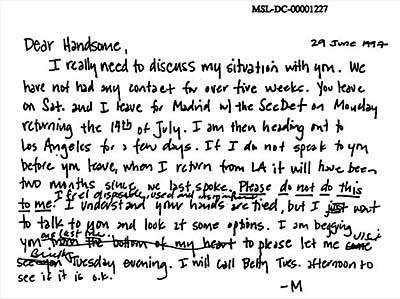 MSL-DC-00001227
29 June 1997
Dear Handsome,
I really need to discuss my situation with you. We
have not had any contact for over five weeks. You leave
on Sat. and I leave for Madrid w/ the SecDef on Monday
returning the 14th of July. I am then heading out to
Los Angeles for a few days. If I do not speak to you
before you leave, when I return from LA it will have been
two months since we last spoke. Please do not do this
to me. I feel disposable, used and insignificant.
I understand your hands are tied, but I just want
to talk to you and look at some options. I am begging
you one last time from the bottom of my heart to please let me come visit
see you briefly Tuesday evening. I will call Betty Tues. afternoon to
see if it is o.k.
-M